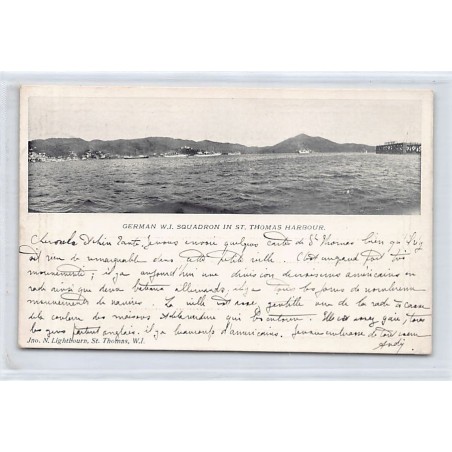 GERMAN W.I. SQUADRON IN ST. THOMAS HARBOUR.
Tante, je vous envoie quelques cartes de St Thomas bien qu'il n'y
ait rien de remarquable dans cette petite ville. C'est un grand port très
mouvementé; il y a aujourd'hui une division de vaisseaux américains en
rade ainsi que deux bateaux allemands, il y a tous les jours de nombreux
mouvements de navires. La ville est assez gentille vue de la rade à cause
de la couleur des maisons et de la verdure qui les entoure. Elle est assez gaie, tous
les gens parlent anglais. il y a beaucoup d'américains. Je vous embrasse de tout cœur
Andy.
Jno. N. Lightbourn, St. Thomas, W.I.